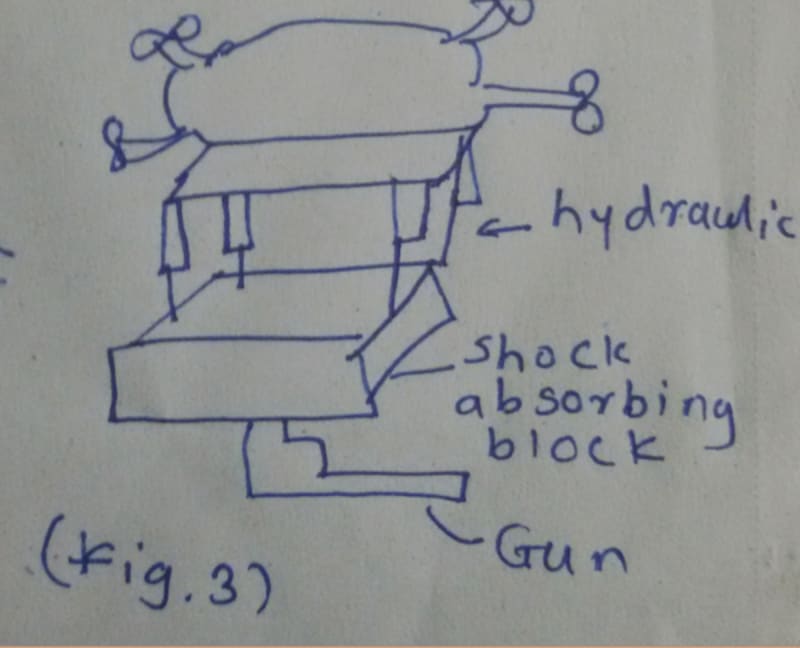 ← hydraulic
shock
absorbing
block
Gun
(Fig.3)